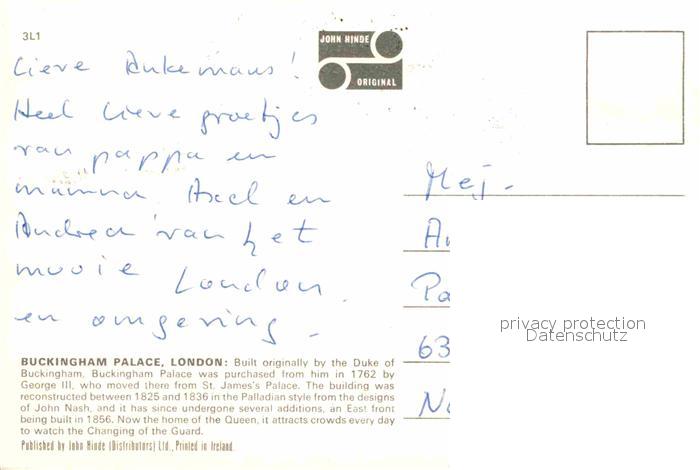 3L1
JOHN HINDE
ORIGINAL
Lieve Ankemaus!
Heel lieve groetjes
van pappa en
mamma Axel en
Andrea van het
mooie London
en omgeving.
Mej.
A
Pa
63
N
privacy protection
Datenschutz
BUCKINGHAM PALACE, LONDON: Built originally by the Duke of
Buckingham, Buckingham Palace was purchased from him in 1762 by
George III, who moved there from St. James's Palace. The building was
reconstructed between 1825 and 1836 in the Palladian style from the designs
of John Nash, and it has since undergone several additions, an East front
being built in 1856. Now the home of the Queen, it attracts crowds every day
to watch the Changing of the Guard.
Published by John Hinde (Distributors) Ltd., Printed in Ireland.